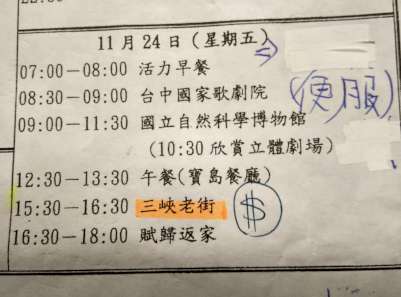 11月24日(星期五)
07:00－08:00 活力早餐
08:30－09:00 台中國家歌劇院
(便服)
09:00－11:30 國立自然科學博物館
(10:30欣賞立體劇場)
12:30－13:30 午餐(寶島餐廳)
15:30－16:30 三峽老街 $
16:30－18:00 賦歸返家